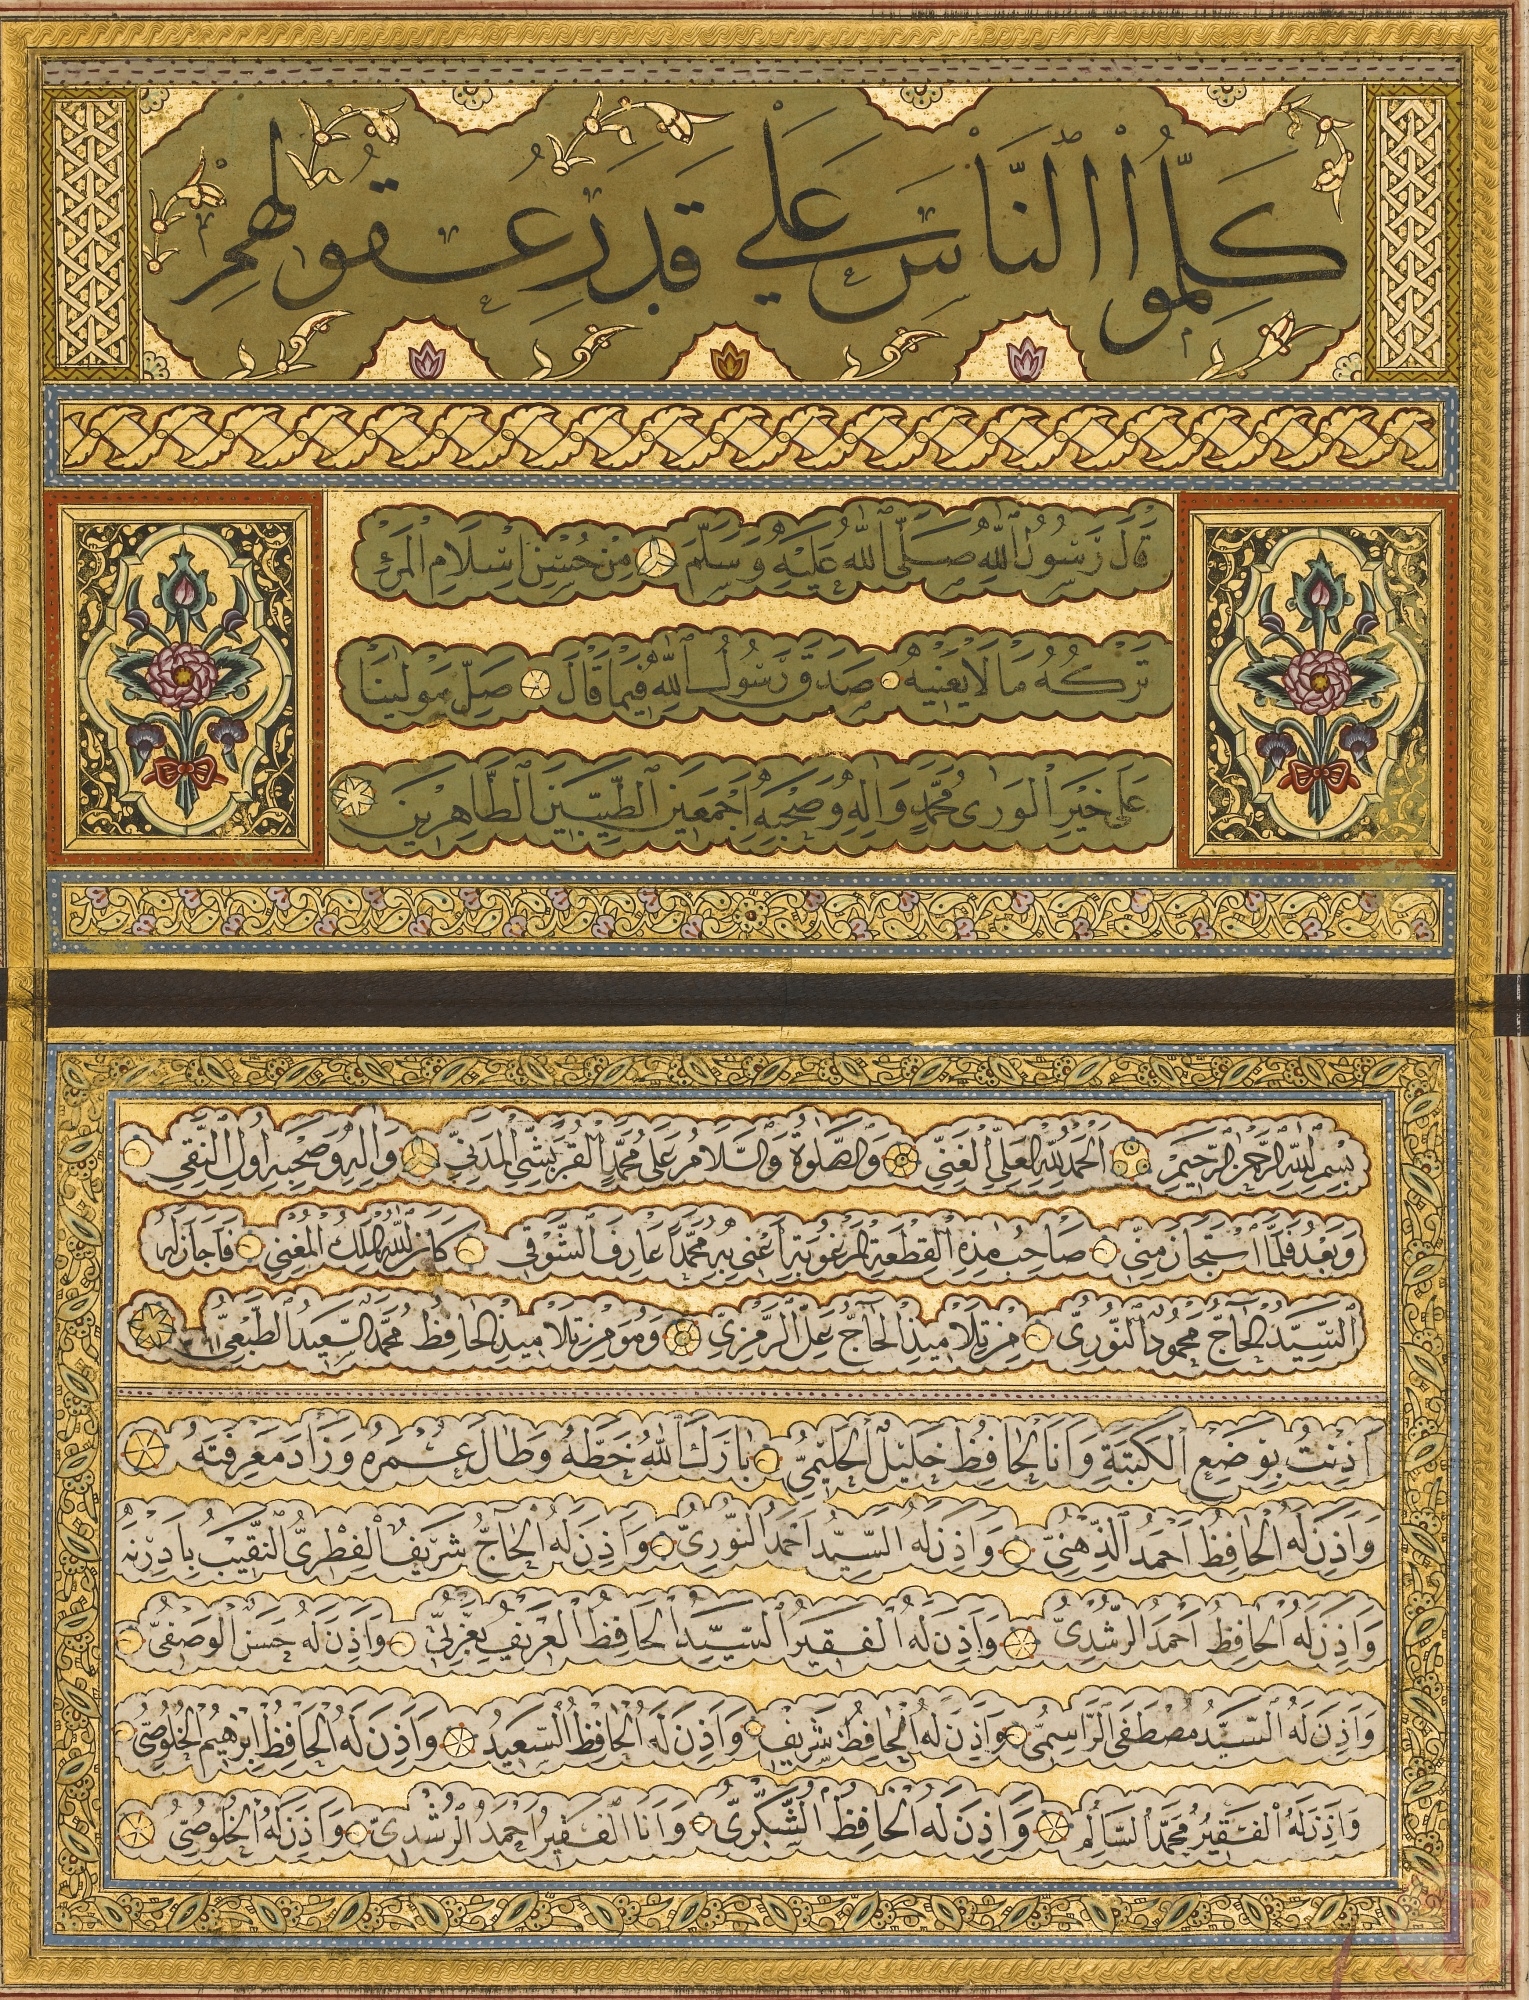 كَلِّمُوا النَّاسَ عَلٰى قَدَرِ عُقُولِهِمْ
قَالَ رَسُولُ اللهِ صَلَّى اللهُ عَلَيْهِ وَسَلَّمَ مِنْ حُسْنِ اِسْلَامِ الْمَرْءِ
تَرْكُهُ مَا لَا يَعْنِيهِ صَدَقَ رَسُولُ اللهِ فِيمَا قَالَ صَلِّ مَوْلٰينَا
عَلٰى خَيْرِ الْوَرٰى مُحَمَّدٍ وَاٰلِهِ وَصَحْبِهِ اَجْمَعِينَ الطَّيِّبِينَ الطَّاهِرِينَ
بِسْمِ اللهِ الرَّحْمٰنِ الرَّحِيمِ اَلْحَمْدُ لِلّٰهِ الْعَلِيِّ الْغَنِيِّ وَالصَّلٰوةُ وَالسَّلَامُ عَلٰى مُحَمَّدٍ الْقُرَيْشِيِّ الْمَدَنِيِّ وَاٰلِهِ وَصَحْبِهِ اُولِي النَّقِي
وَبَعْدُ فَلَمَّا اسْتَجَازَ مِنِّي صَاحِبُ هٰذِهِ الْقِطْعَةِ الْمَرْغُوبَةِ اَعْنِي بِهِ مُحَمَّدْ عَارِفَ الشَّوْقِي كَانَ لَهُ اللهُ الْمَلِكُ الْمُغْنِي فَاَجَازَ لَهُ
السَّيِّدُ الْحَاجُّ مَحْمُودُ النُّورِيُّ مِنْ تَلَامِيذِ الْحَاجِّ عَلِيِّ الرَّمْزِيِّ وَهُوَ مِنْ تَلَامِيذِ الْحَافِظِ مُحَمَّدْ السَّعِيدُ
اَذِنْتُ بِوَضْعِ الْكَتَبَةِ وَاَنَا الْحَافِظُ خَلِيلُ الْحَلِيمِيُّ بَارَكَ اللهُ خَطَّهُ وَطَالَ عُمْرُهُ وَزَادَ مَعْرِفَتَهُ
وَاَذِنَ لَهُ الْحَافِظُ اَحْمَدُ الذِّهْنِيُّ وَاَذِنَ لَهُ السَّيِّدُ اَحْمَدُ النُّورِيُّ وَاَذِنَ لَهُ الْحَاجُّ شَرِيفُ الْفِطْرِيُّ النَّقِيبُ بِاَدِرْنَه
وَاَذِنَ لَهُ الْحَافِظُ اَحْمَدُ الرُّشْدِيُّ وَاَذِنَ لَهُ الْفَقِيرُ السَّيِّدُ الْحَافِظُ الْعَرِيفُ بِعَزْمِيِّ وَاَذِنَ لَهُ حَسَنُ الْوَصْفِيُّ
وَاَذِنَ لَهُ السَّيِّدُ مُصْطَفَى الرَّاسِمِيُّ وَاَذِنَ لَهُ الْحَافِظُ شَرِيفُ وَاَذِنَ لَهُ الْحَافِظُ السَّعِيدُ وَاَذِنَ لَهُ الْحَافِظُ اِبْرٰهِيمُ الْخُلُوصِيُّ
وَاَذِنَ لَهُ الْفَقِيرُ مُحَمَّدُ السَّالِمُ وَاَذِنَ لَهُ الْحَافِظُ الشُّكْرِيُّ وَاَنَا الْفَقِيرُ اَحْمَدُ الرُّشْدِيُّ وَاَذِنَ لَهُ الْخُلُوصِيُّ